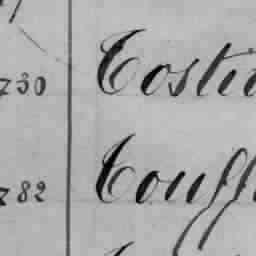 730 Costi
782 Couff